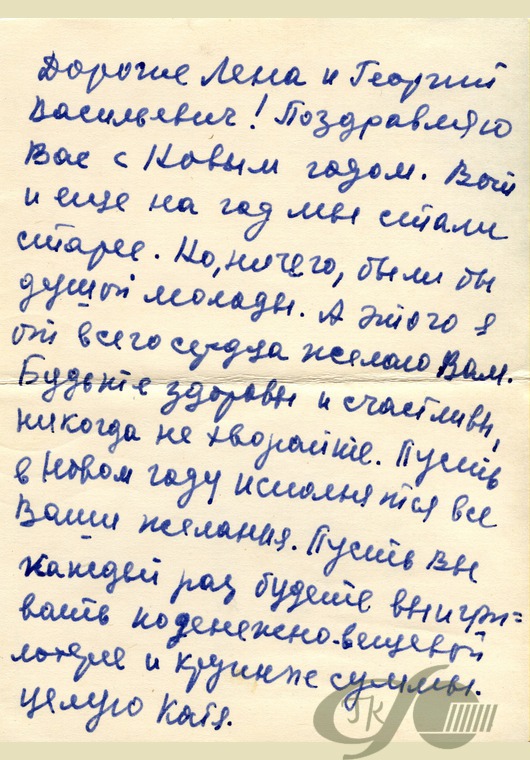 Дорогие Лена и Георгий
Васильевич! Поздравляю
Вас с Новым годом. Вот
и еще на год мы стали
старее. Но, ничего, были бы
душой молоды. А этого я
от всего сердца желаю Вам.
Будьте здоровы и счастливы,
никогда не хворайте. Пусть
в Новом году исполнятся все
Ваши желания. Пусть Вы
каждый раз будете выигры=
вать по денежно-вещевой
лотерее и крупные суммы.
Целую Катя.